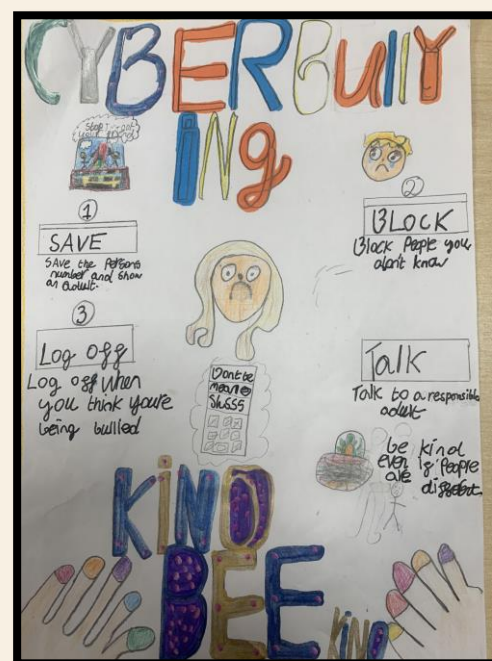 CYBERBUllY
iNg
①
SAVE
SAve the Persons
number and show
an adult.
②
BLOCK
Block People you
don't know
③
Log off
Log off when
you think youre
being bulled
Dont be
mean
Talk
Talk to a responsible
adult
be kind
even if People
are different
KiND
BEE
KiND